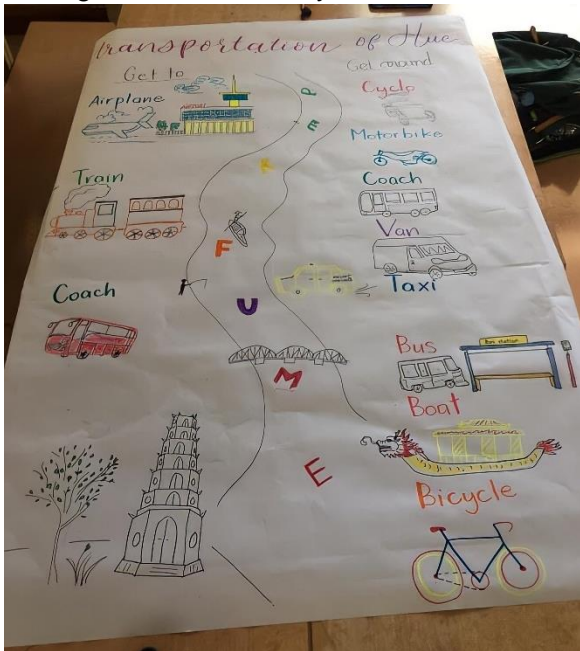 Transportation of Hue
Get to
Airplane
AIRPORT
Train
Coach
P
E
R
F
U
M
E
Get around
Cyclo
Motorbike
Coach
Van
Taxi
Bus
Bus station
Boat
Bicycle